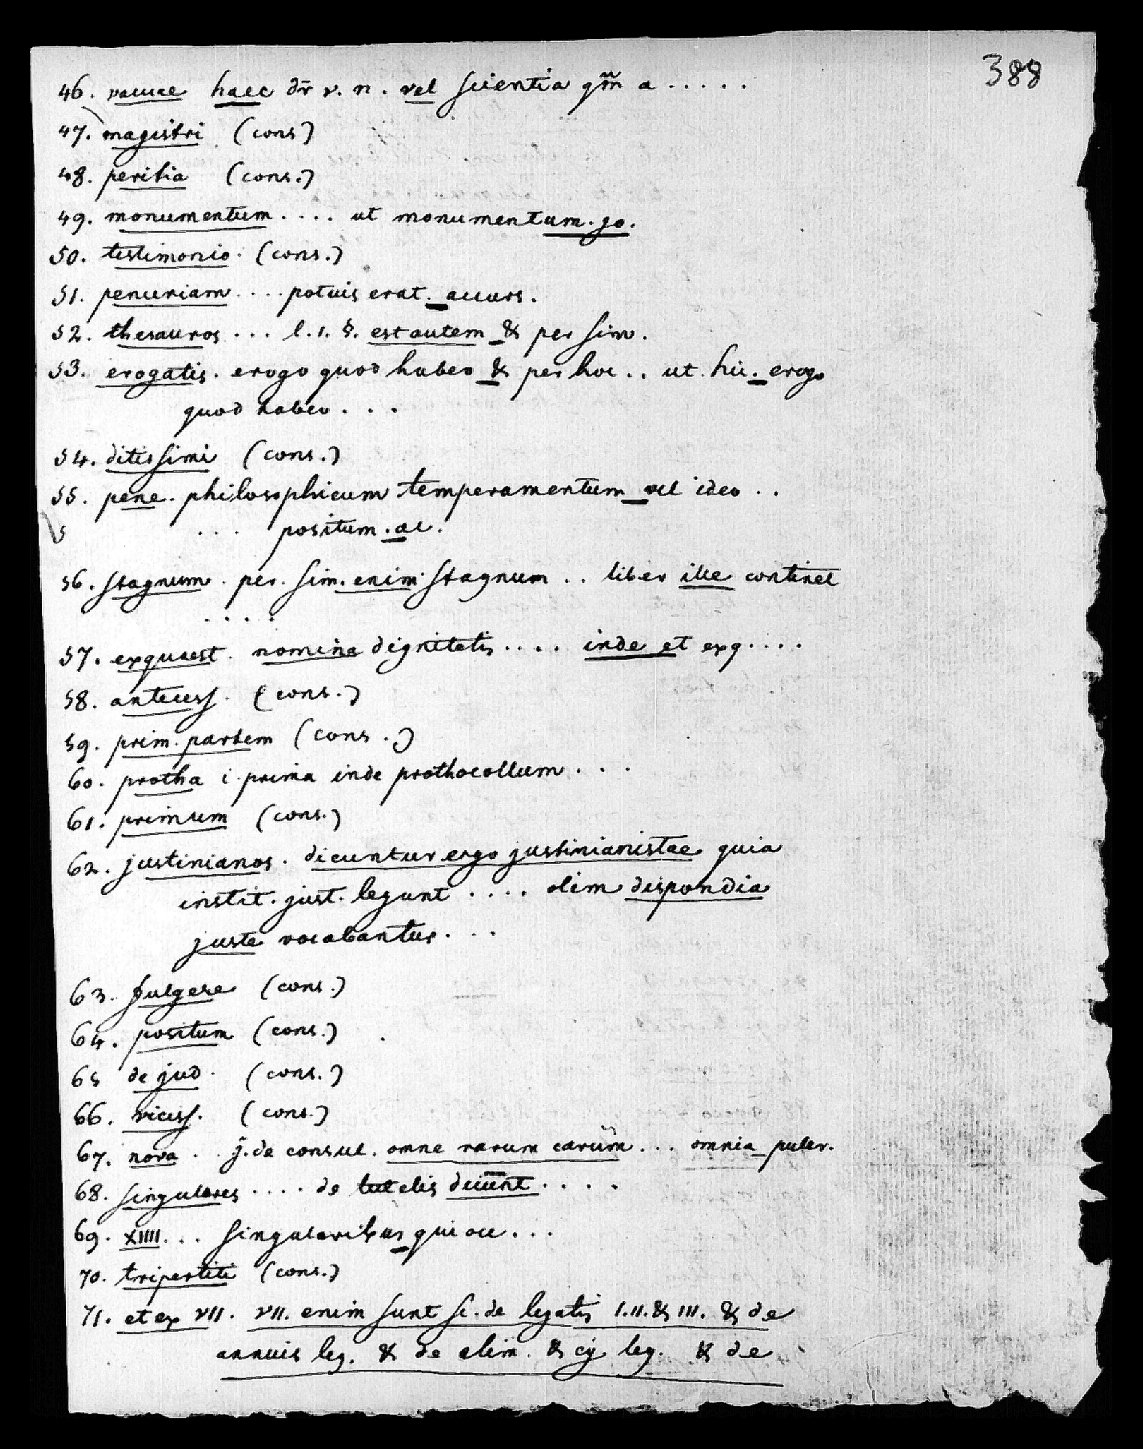 388
46. vacuae haec dr v. n. vel scientia qm a . . . . .
47. magistri (cons)
48. peritia (cons.)
49. monumentum . . . . ut monumentum. jo.
50. testimonio. (cons.)
51. penuriam . . . . potuis erat. accurs.
52. thesauros . . . l. 1. §. est autem & per sim.
53. erogatis. erogo quod habeo & per hoc . . ut. hic. erogo
quod habeo . . .
54. ditissimi (cons.)
55. pene. philosophicum temperamentum vel ideo . .
5 . . . positum. ac.
56. stagnum. per. sim. enim stagnum . . liber ille continet
. . . .
57. exquaest. nomina dignitatis . . . . inde et exq . . . .
58. antecess. (cons.)
59. prim. partem (cons.)
60. protha i. prima inde prothocollum . . .
61. primum (cons.)
62. justinianos. dicuntur ergo justinianistae quia
instit. just. legunt . . . . olim dispondia
juste vocabantur . . .
63. fulgere (cons.)
64. positum (cons.)
65 de jud. (cons.)
66. vicess. (cons.)
67. nova . . j. de consul. omne rarum carum . . . omnia pulcr.
68. singulares . . . . de tutelis dicunt . . . .
69. XIIII . . . singularibus qui occ . . .
70. tripertiti (cons.)
71. et ex VII. VII. enim sunt sc. de legatis I. II. & III. & de
annuis leg. & de alim. & cij leg. & de